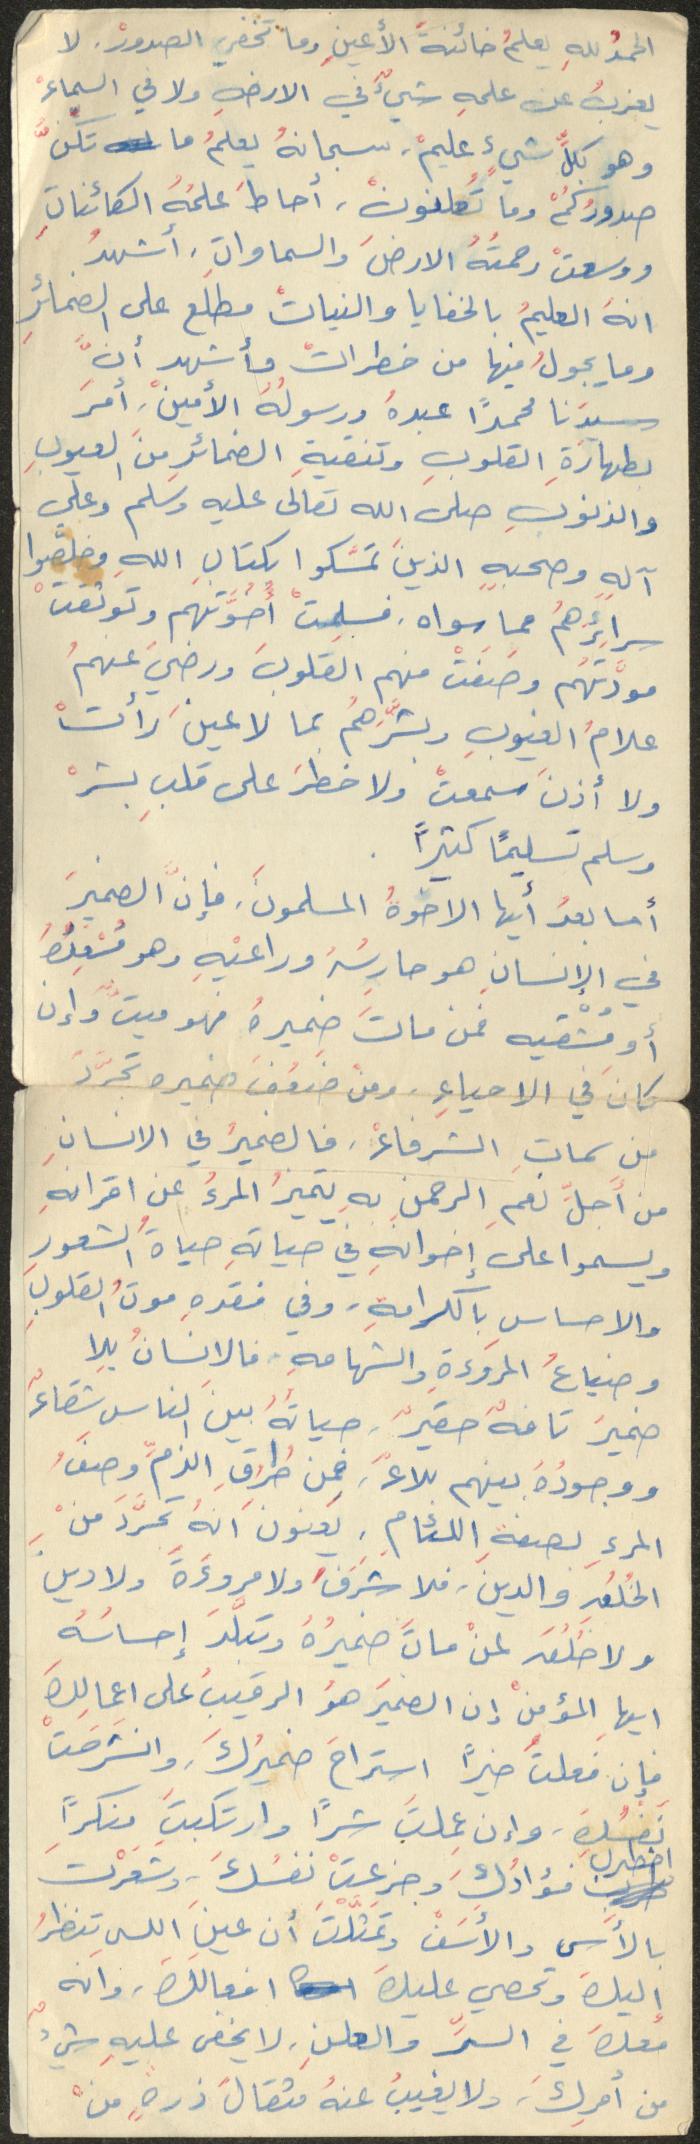 الحمدُ للهِ يعلمُ خائنةَ الأعينِ وما تخفي الصدورْ. لا
يعزبُ عن علمهِ شيءٌ في الارضِ ولا في السماءْ
وهو بكلِّ شيءٍ عليمْ، سبحانهُ يعلمُ ما تكنُّ
صدورُكمْ وما تُعلنونْ، أحاطَ علمُهُ الكائناتِ
ووسعتْ رحمتُهُ الارضَ والسماواتِ، أشهدُ
انهُ العليمُ بالخفايا والنياتْ مطلع على الضمائرِ
وما يجولُ فيها من خطراتْ وأشهد أنَّ
سيدَنا محمدًا عبدهُ ورسولهُ الأمينْ، أمرَ
بطهارةِ القلوبِ وتنقيةِ الضمائرِ منَ العيوبِ
والذنوبِ صلى الله تعالى عليه وسلم وعلى
آلهِ وصحبهِ الذينَ تمسَّكوا بكتابِ اللهِ وخلَّصوا
سرائرَهمُ مما سواه، فسلمتْ أخوَّتُهم وتوثقتْ
مودَّتُهُم وصَفَتْ منهم القلوبَ ورضيَ عنهمُ
علامُ الغيوبِ وبشَّرَهمُ بما لا عينَ رأتْ
ولا أذنَ سمعتْ ولا خطرَ على قلبِ بشرْ
وسلم تسليمًا كثيرًا .
أما بعدُ أيها الاخوةُ المسلمونَ، فإنَّ الضميرَ
في الإنسانِ هو حارسُهُ وراعيْهِ وهو مُسْعِدُهُ
أو مُشْقيه فمن ماتَ ضميرهُ فهو ميتٌ وإن
كانَ في الاحياءِ، ومنْ ضَعُفَ ضميره تجرَّدَ
من سماتِ الشرفاءْ، فالضميرُ في الانسانِ
من أجلِّ نعمِ الرحمنِ بهِ يتميزُ المرءُ عن اقرانهِ
ويسموا على إخوانهِ في حياتهِ حياةُ الشعورِ
والاحساسِ بالكرامةِ، وفي فقدهِ موتُ القلوبِ
وضياعُ المروءةِ والشهامهِ، فالانسانُ بلا
ضميرَ تافهٌ حقيرٌ، حياتهُ بينَ الناس شقاءٌ
ووجودُهُ بينهم بلاءٌ، فمن طُرُقِ الذمِّ وصفُ
المرءِ بصفةِ اللئامِ، يَعنونَ انهُ تجرَّدَ منْ
الخُلُقِ والدينَ، فلا شرَفَ ولا مروءةَ ولا دينَ
ولا خُلُقَ لمنْ ماتَ ضميرُهُ وتبلَّدَ إحساسُهُ
ايها المؤمنْ إن الضميرَ هوُ الرقيبُ على اعمالِكَ
فإن فعلتَ خيرًا استراحَ ضميرُكَ، وانشرَحَتْ
نَفسُكَ، وإن عملتَ شرًا وارتكبتَ منكرًا
اضطربَ فؤادُكَ وجزعتْ نفسُكَ، وشعَرْتَ
بالأسى والأسَفْ وتمثَّلْتَ أن عينَ اللهِ تنظرُ
إليكَ وتحصي عليكَ افعالَكَ، وانه
معكَ في السرِّ والعلنِ، لا يخفى عليهِ شيءٌ
من أمرِكَ، ولا يغيبُ عنهُ مثقالَ ذرةٍ منْ